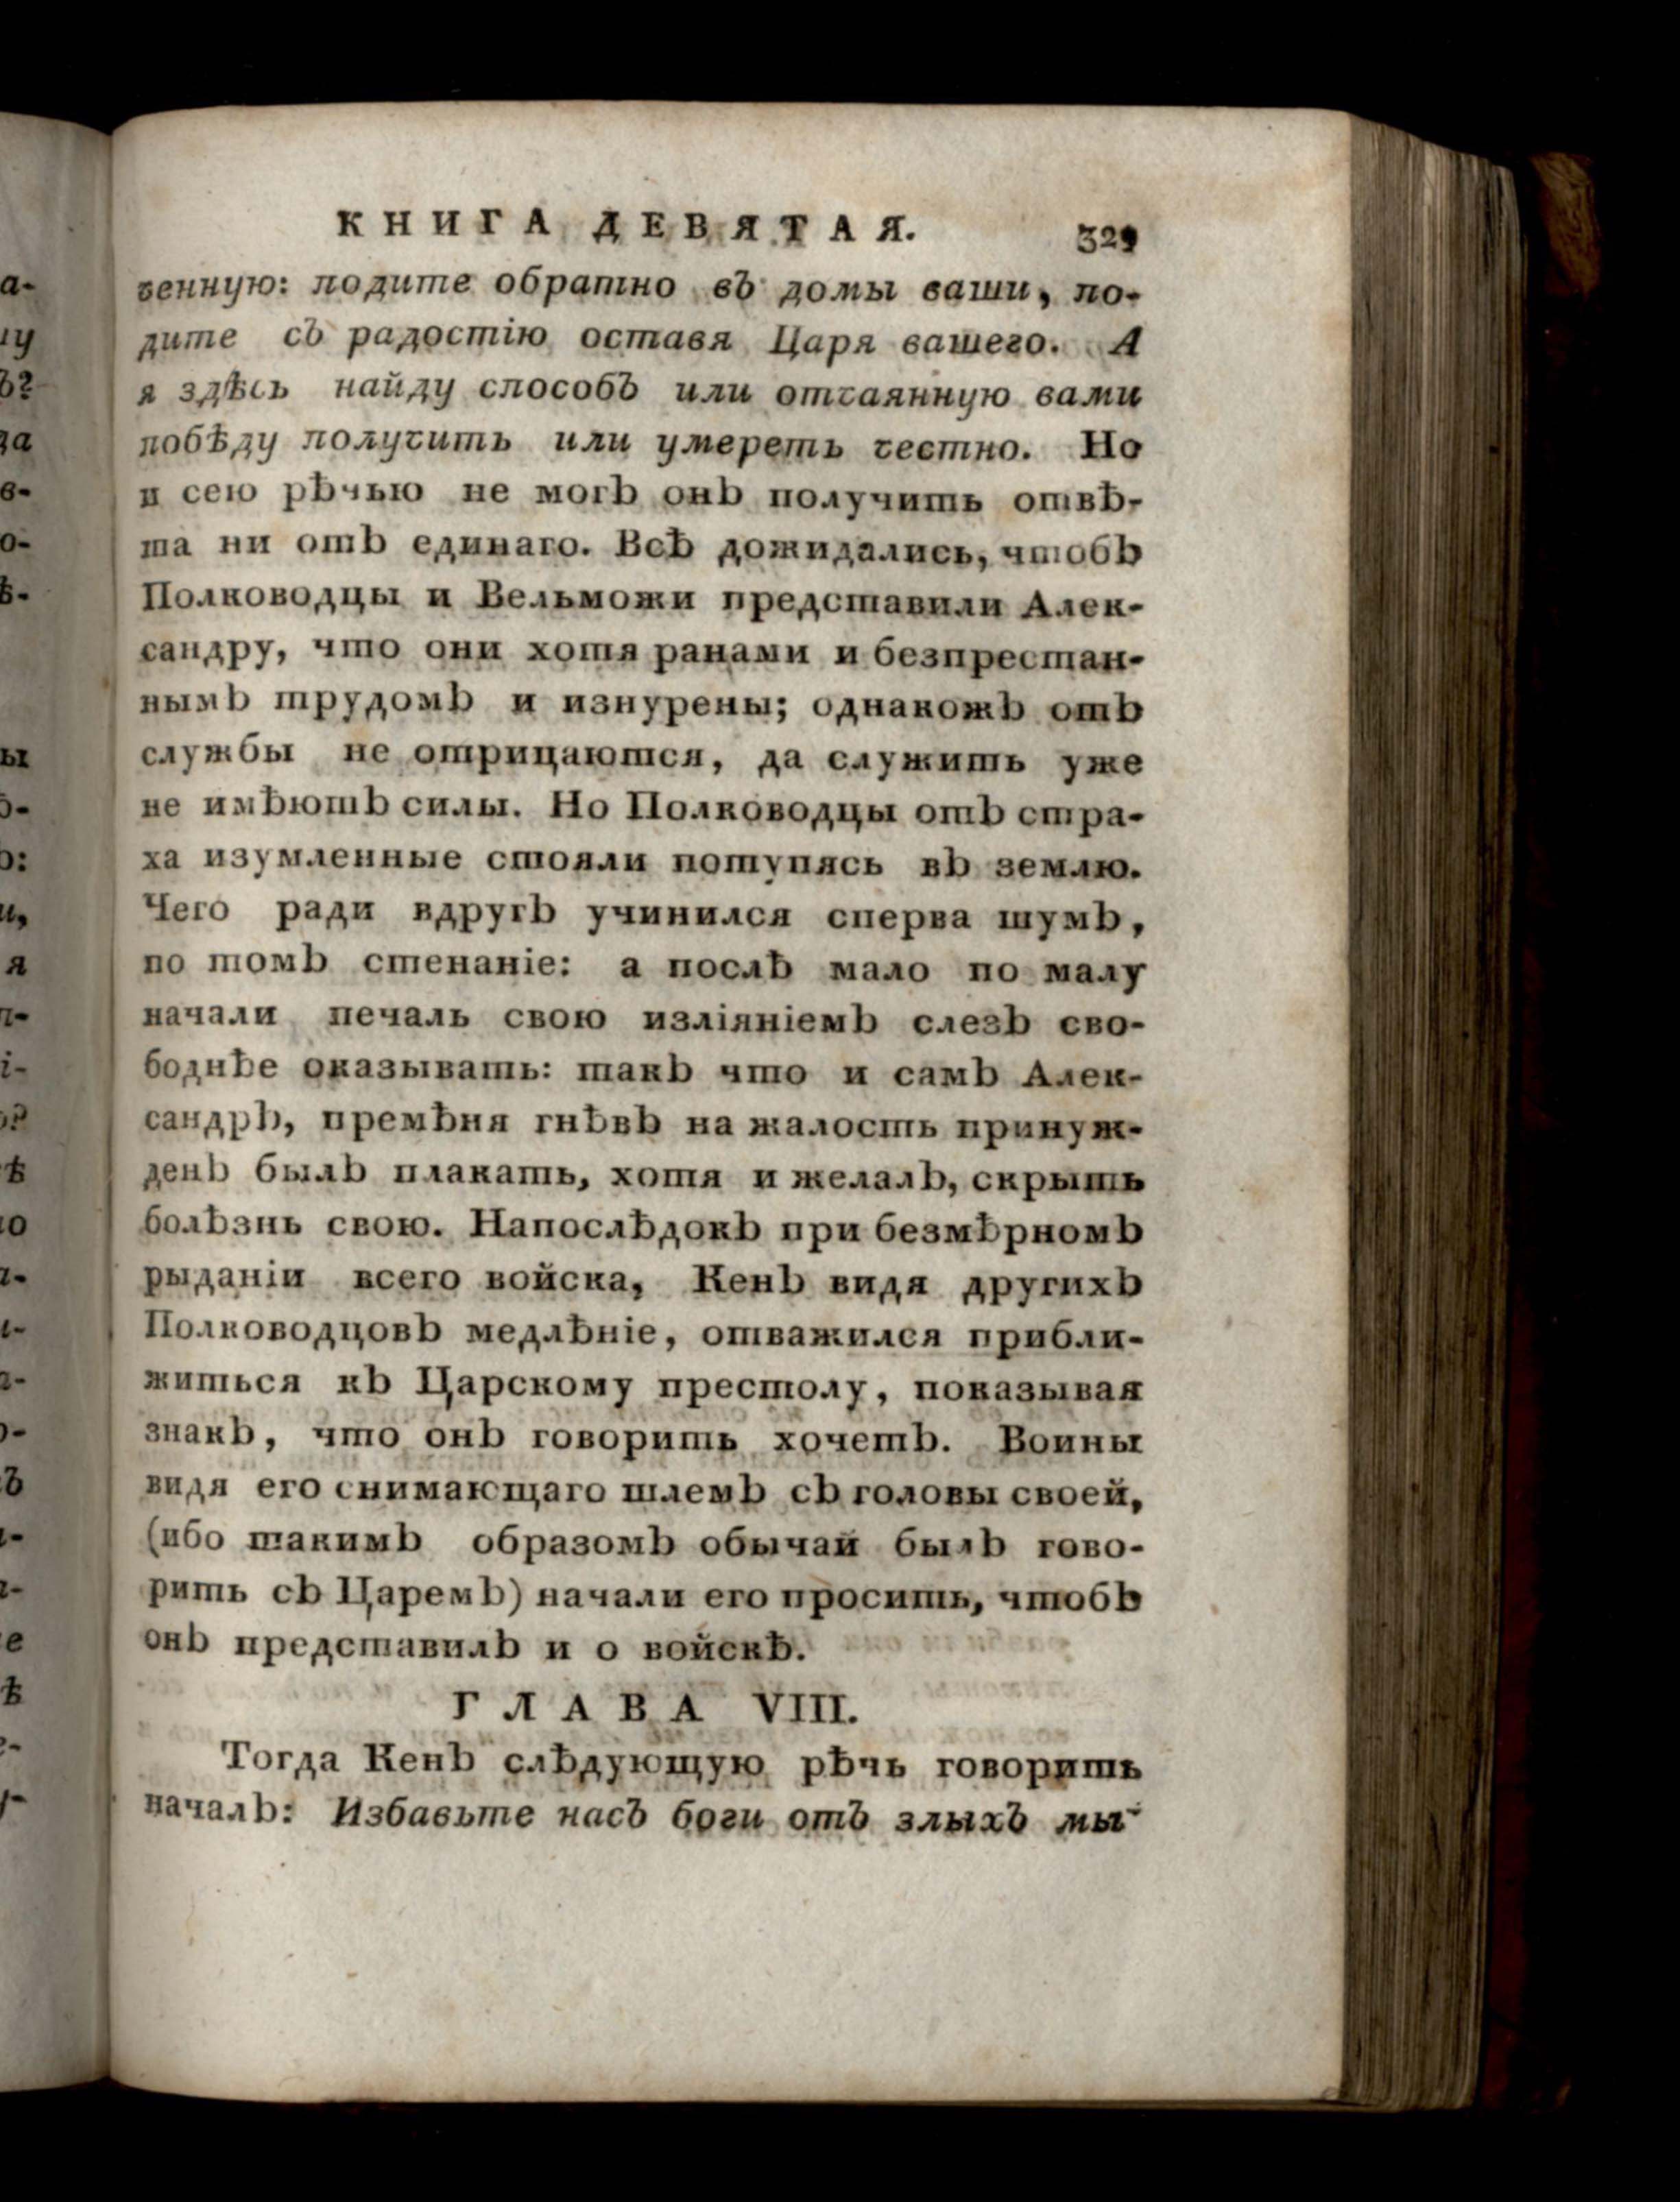 КНИГА ДЕВЯТАЯ. 329
ченную: подите обратно въ домы ваши, по-
дите съ радостію оставя Царя вашего. А
я здѣсь найду способъ или отчаянную вами
побѣду получить или умереть честно. Но
и сею рѣчью не могъ онъ получить отвѣ-
та ни отъ единаго. Всѣ дожидались, чтобъ
Полководцы и Вельможи представили Алек-
сандру, что они хотя ранами и безпрестан-
нымъ трудомъ и изнурены; однакожъ отъ
службы не отрицаются, да служить уже
не имѣютъ силы. Но Полководцы отъ стра-
ха изумленные стояли потупясь въ землю.
Чего ради вдругъ учинился сперва шумъ,
по томъ стенаніе: а послѣ мало по малу
начали печаль свою изліяніемъ слезъ сво-
боднѣе оказывать: такъ что и самъ Алек-
сандръ, премѣня гнѣвъ на жалость принуж-
денъ былъ плакать, хотя и желалъ, скрыть
болѣзнь свою. Напослѣдокъ при безмѣрномъ
рыданіи всего войска, Кенъ видя другихъ
Полководцовъ медлѣніе, отважился прибли-
житься къ Царскому престолу, показывая
знакъ, что онъ говорить хочетъ. Воины
видя его снимающаго шлемъ съ головы своей,
(ибо такимъ образомъ обычай былъ гово-
рить съ Царемъ) начали его просить, чтобъ
онъ представилъ и о войскѣ.
ГЛАВА VIII.
Тогда Кенъ слѣдующую рѣчь говорить
началъ: Избавьте насъ боги отъ злыхъ мы-